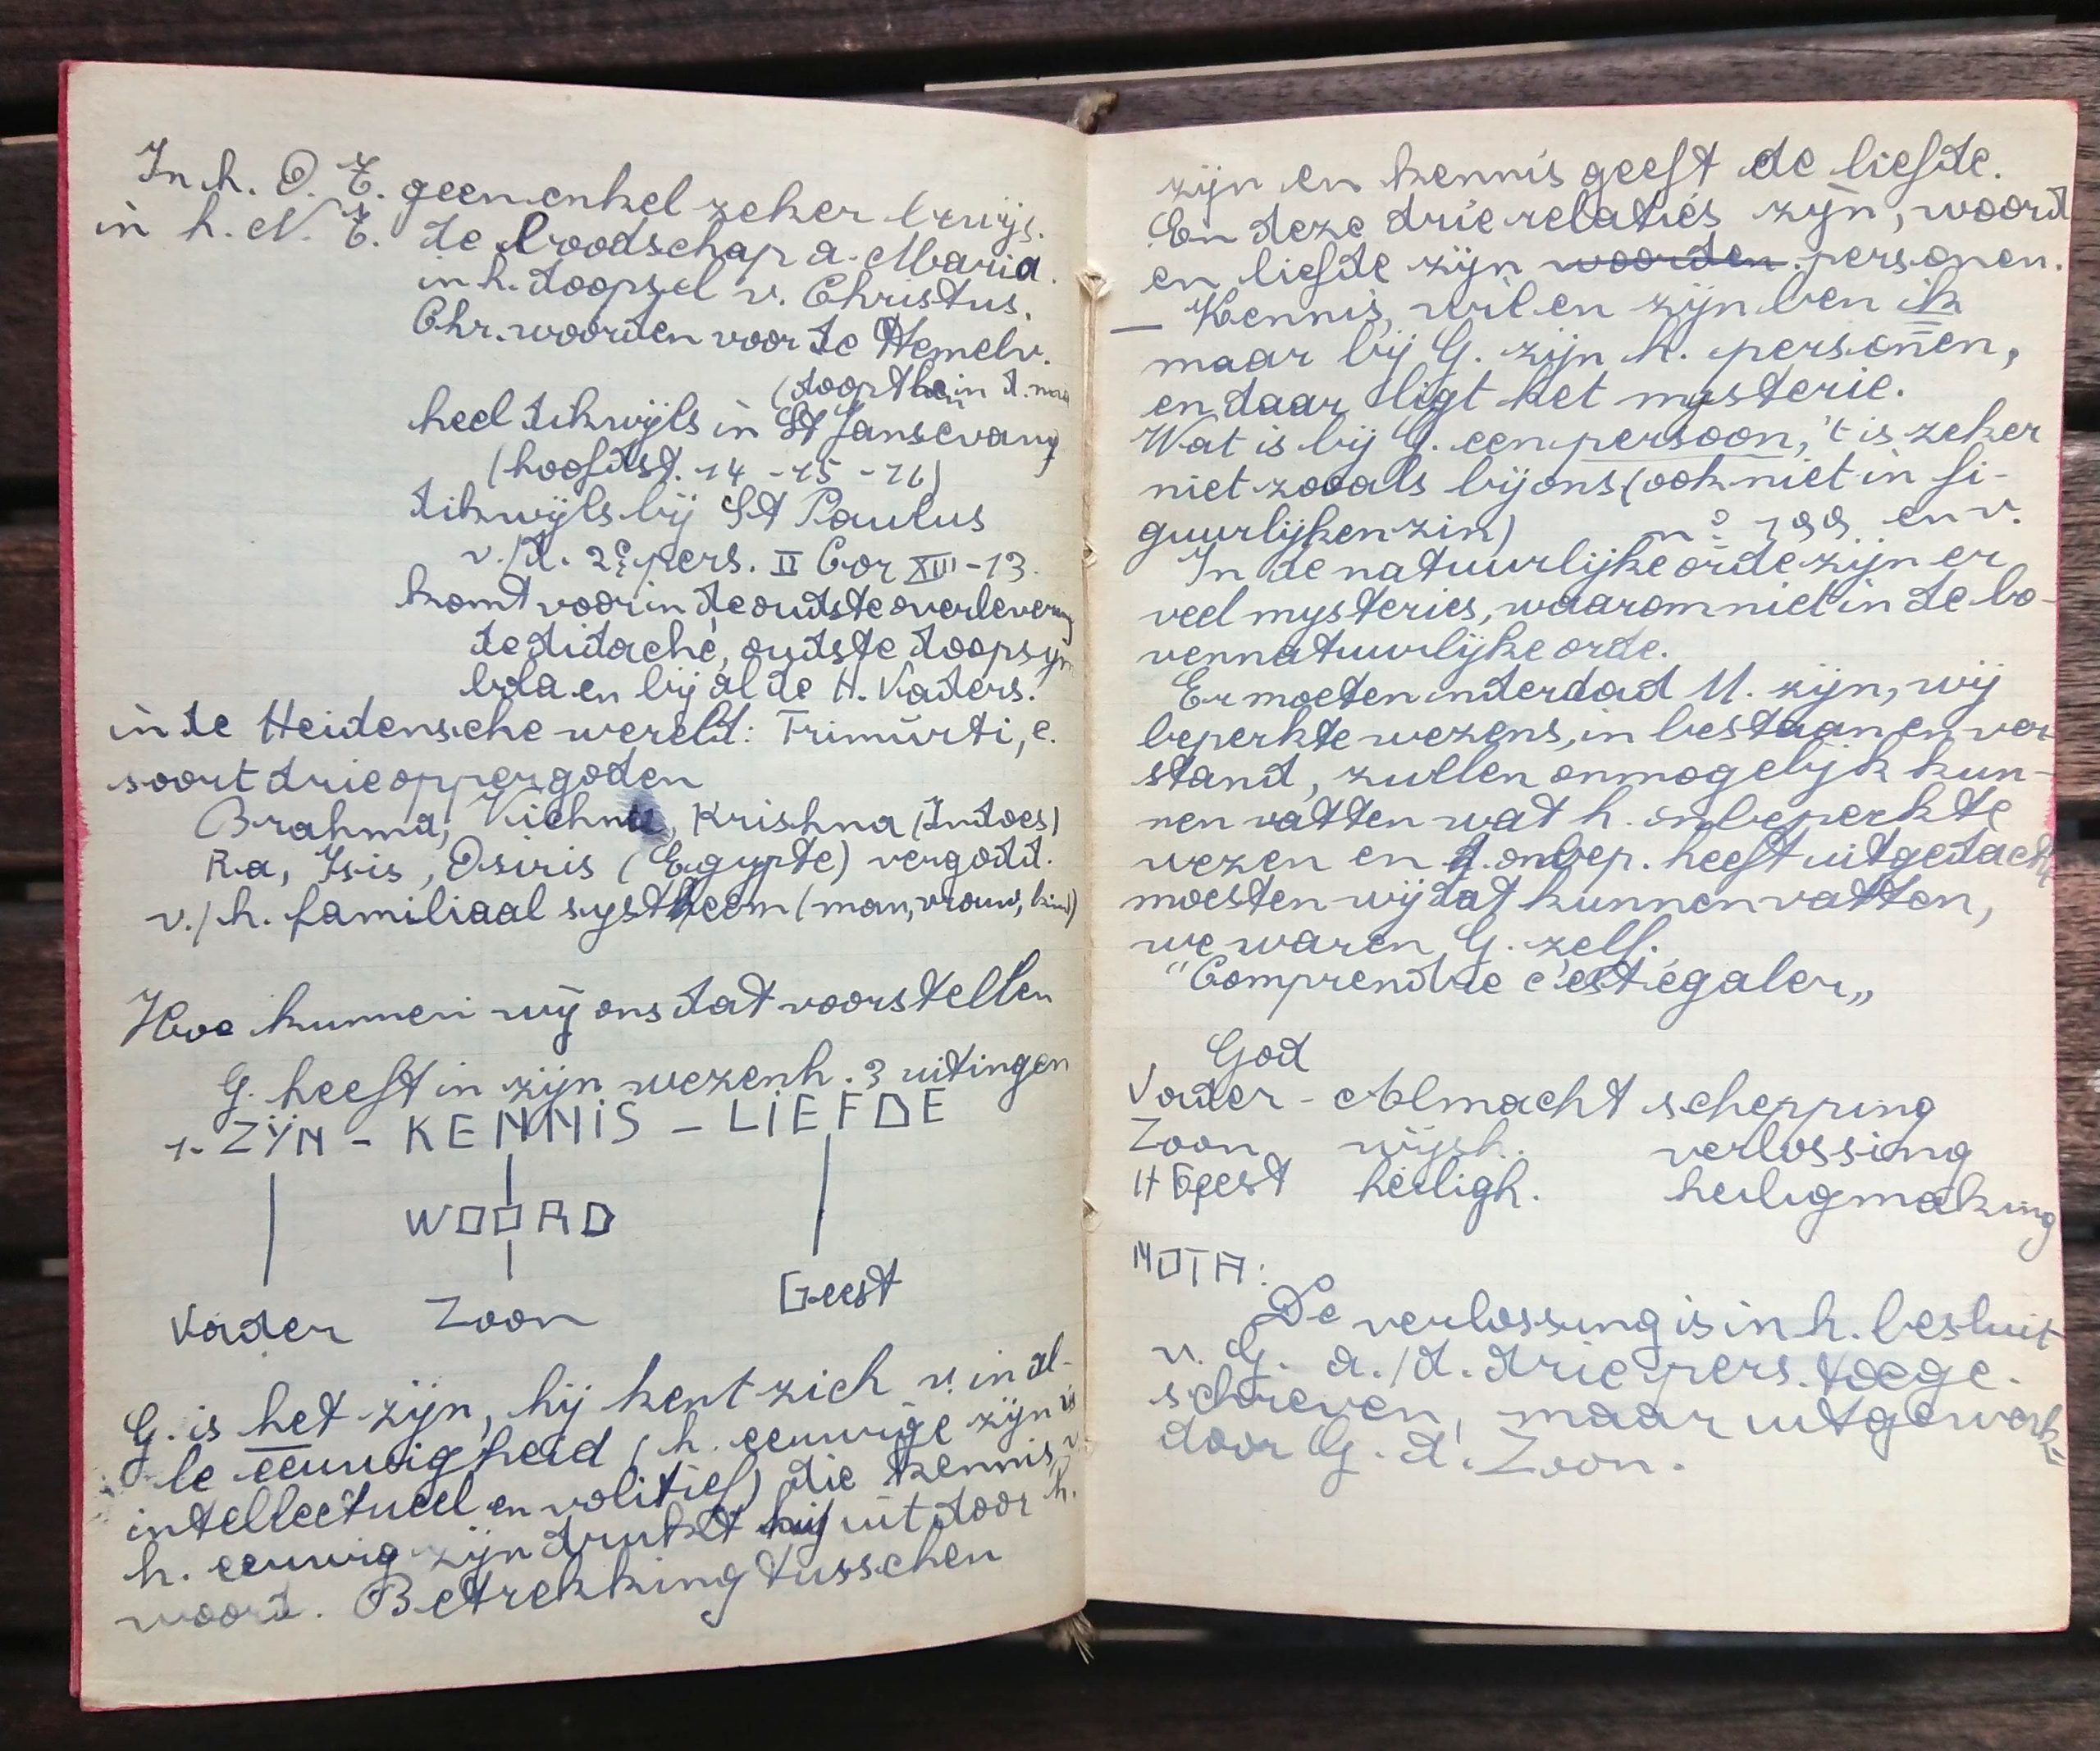 In h. O. T. geen enkel zeker bewijs.
in h. N. T. de boodschap a. Maria.
in h. doopsel v. Christus.
Chr. woorden voor de Hemelv.
(doopt hen in d. na
heel dikwijls in St Jansevang
(hoofdst. 14 - 15 - 16)
dikwijls bij St Paulus
v./d. 2e pers. II Cor XIII-13.
komt voor in de oudste overlevering
de didache, oudste doopsym
bola en bij al de H. Vaders.
in de Heidensche wereld: Trimurti, e.
soort drie oppergoden
Brahma, Vichnu, Krishna (Indoes)
Ra, Isis, Osiris (Egypte) vergodd.
v./h. familiaal systheem (man, vrouw, kind)
Hoe kunnen wij ons dat voorstellen
G. heeft in zijn wezenh. 3 uitingen
1. ZIJN - KENNIS - LIEFDE
WOORD
Vader Zoon Geest
G. is het zijn, hij kent zich v. in al-
le eeuwigheid (h. eeuwige zijn is
intellectueel en volitief) die kennis v.
h. eeuwig zijn drukt hij uit door h.
woord. Betrekking tusschen
zijn en kennis geeft de liefde.
En deze drie relaties zijn, woord
en liefde zijn woorden personen.
— Kennis, wil en zijn ben ik
maar bij G. zijn h. personen,
en daar ligt het mysterie.
Wat is bij G. een persoon, 't is zeker
niet zooals bij ons (ook niet in fi-
guurlijken zin) nº 199 en v.
In de natuurlijke orde zijn er
veel mysteries, waarom niet in de bo-
vennatuurlijke orde.
Er moeten inderdaad M. zijn, wij
beperkte wezens, in bestaan en ver-
stand, zullen onmogelijk kun-
nen vatten wat h. onbeperkte
wezen en d. onbep. heeft uitgedacht
moesten wij dat kunnen vatten,
we waren G. zelf.
"Comprendre c'est égaler„
God
Vader - Almacht schepping
Zoon wijsh. verlossing
H Geest heiligh. heiligmaking
NOTA:
De verlossing is in h. besluit
v. G. a./d. drie pers. toege-
schreven, maar uitgewerkt
door G. d. Zoon.